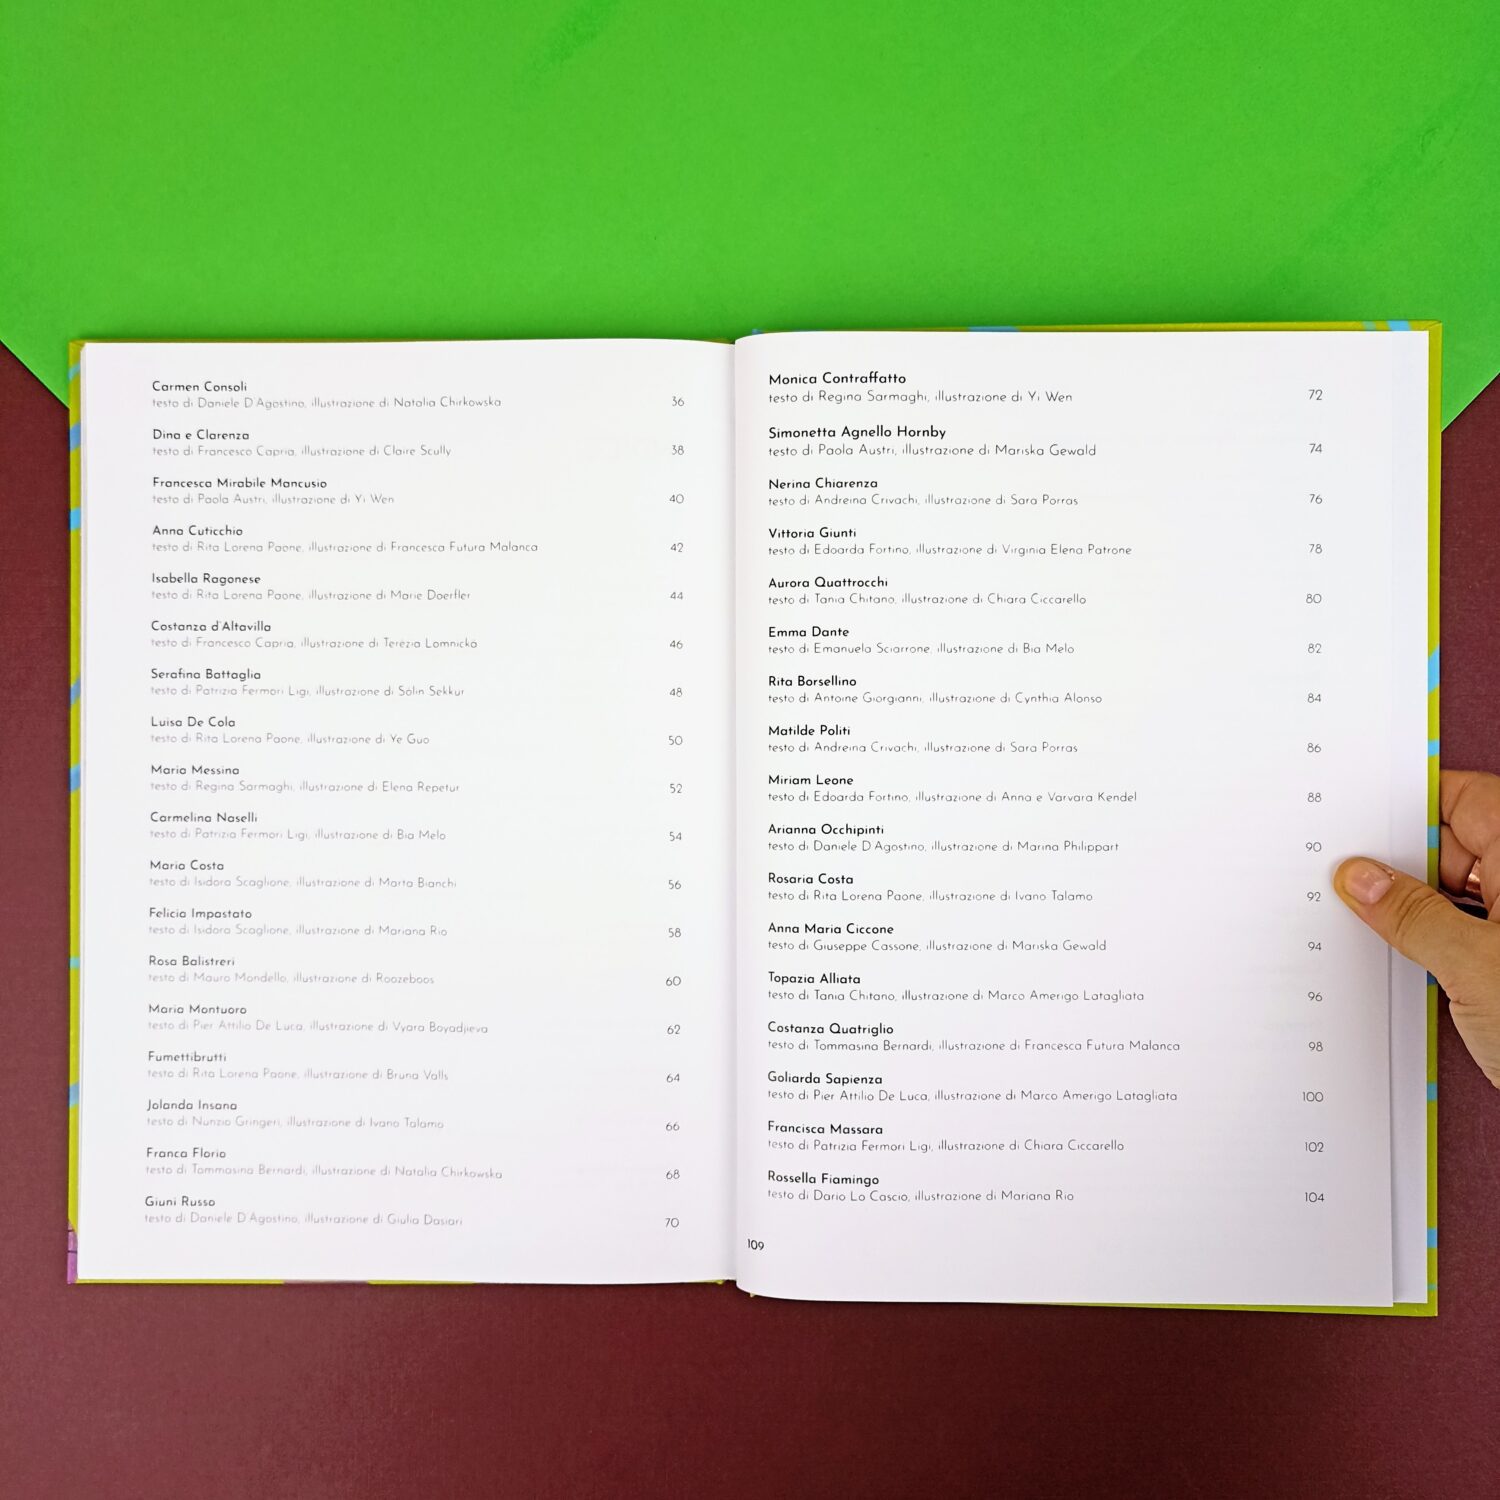 Carmen Consoli
testo di Daniele D'Agostino, illustrazione di Natalia Chirkowska 36
Dina e Clarenza
testo di Francesco Capria, illustrazione di Claire Scully 38
Francesca Mirabile Mancusio
testo di Paola Austri, illustrazione di Yi Wen 40
Anna Cuticchio
testo di Rita Lorena Paone, illustrazione di Francesca Futura Malanca 42
Isabella Ragonese
testo di Rita Lorena Paone, illustrazione di Marie Doerfler 44
Costanza d'Altavilla
testo di Francesco Capria, illustrazione di Terézia Lomnická 46
Serafina Battaglia
testo di Patrizia Fermori Ligi, illustrazione di Sólin Sekkur 48
Luisa De Cola
testo di Rita Lorena Paone, illustrazione di Ye Guo 50
Maria Messina
testo di Regina Sarmaghi, illustrazione di Elena Repetur 52
Carmelina Naselli
testo di Patrizia Fermori Ligi, illustrazione di Bia Melo 54
Maria Costa
testo di Isidora Scaglione, illustrazione di Marta Bianchi 56
Felicia Impastato
testo di Isidora Scaglione, illustrazione di Mariana Rio 58
Rosa Balistreri
testo di Mauro Mondello, illustrazione di Roozeboos 60
Maria Montuoro
testo di Pier Attilio De Luca, illustrazione di Vyara Boyadjieva 62
Fumettibrutti
testo di Rita Lorena Paone, illustrazione di Bruna Valls 64
Jolanda Insana
testo di Nunzio Gringeri, illustrazione di Ivano Talamo 66
Franca Florio
testo di Tommasina Bernardi, illustrazione di Natalia Chirkowska 68
Giuni Russo
testo di Daniele D'Agostino, illustrazione di Giulia Dasiari 70
Monica Contraffatto
testo di Regina Sarmaghi, illustrazione di Yi Wen 72
Simonetta Agnello Hornby
testo di Paola Austri, illustrazione di Mariska Gewald 74
Nerina Chiarenza
testo di Andreina Crivachi, illustrazione di Sara Porras 76
Vittoria Giunti
testo di Edoarda Fortino, illustrazione di Virginia Elena Patrone 78
Aurora Quattrocchi
testo di Tania Chitano, illustrazione di Chiara Ciccarello 80
Emma Dante
testo di Emanuela Sciarrone, illustrazione di Bia Melo 82
Rita Borsellino
testo di Antoine Giorgianni, illustrazione di Cynthia Alonso 84
Matilde Politi
testo di Andreina Crivachi, illustrazione di Sara Porras 86
Miriam Leone
testo di Edoarda Fortino, illustrazione di Anna e Varvara Kendel 88
Arianna Occhipinti
testo di Daniele D'Agostino, illustrazione di Marina Philippart 90
Rosaria Costa
testo di Rita Lorena Paone, illustrazione di Ivano Talamo 92
Anna Maria Ciccone
testo di Giuseppe Cassone, illustrazione di Mariska Gewald 94
Topazia Alliata
testo di Tania Chitano, illustrazione di Marco Amerigo Latagliata 96
Costanza Quatriglio
testo di Tommasina Bernardi, illustrazione di Francesca Futura Malanca 98
Goliarda Sapienza
testo di Pier Attilio De Luca, illustrazione di Marco Amerigo Latagliata 100
Francisca Massara
testo di Patrizia Fermori Ligi, illustrazione di Chiara Ciccarello 102
Rossella Fiamingo
testo di Dario Lo Cascio, illustrazione di Mariana Rio 104
109